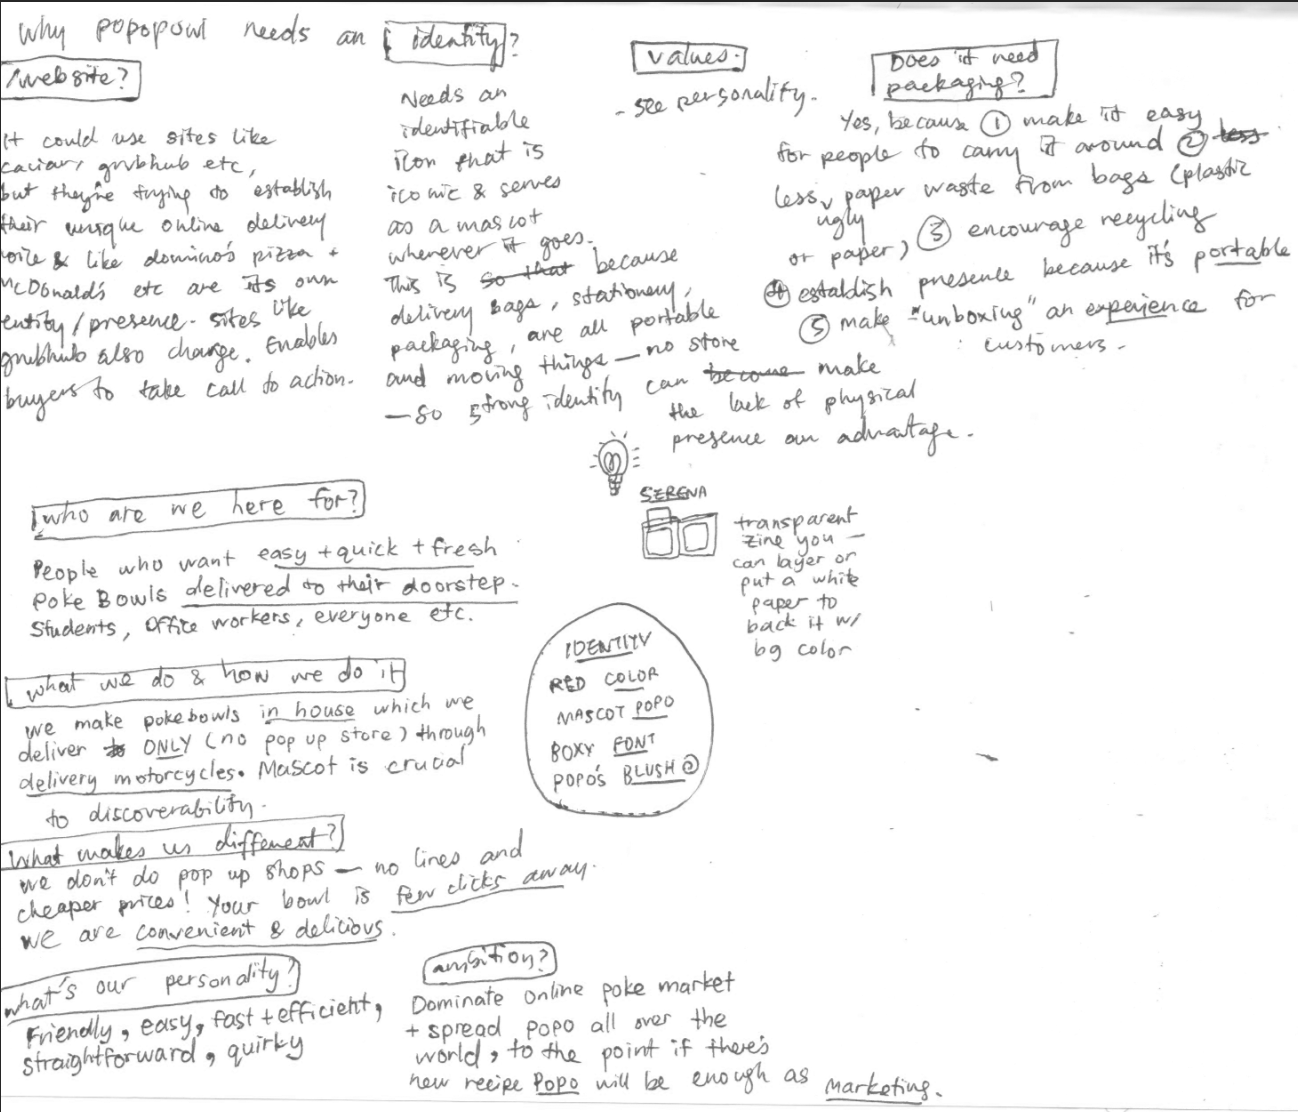 Why popopowl needs an identity?
/website?
It could use sites like
caviar, grubhub etc,
but they're trying to establish
their unique online delivery
voice & like domino's pizza +
McDonald's etc are its own
entity/presence. sites like
grubhub also charge. Enables
buyers to take call to action.
Needs an
identifiable
icon that is
iconic & serves
as a mascot
whenever it goes.
This is so that because
delivery bags, stationery,
packaging, are all portable
and moving things — no store
— so strong identity can become make
the lack of physical
presence an advantage.
values.
- see personality.
Does it need
packaging?
Yes, because ① make it easy
for people to carry it around ② less
less ugly paper waste from bags (plastic
or paper) ③ encourage recycling
④ establish presence because it's portable
⑤ make "unboxing" an experience for
customers.
SERENA
transparent
zine you —
can layer or
put a white
paper to
back it w/
bg color
who are we here for?
People who want easy + quick + fresh
Poke Bowls delivered to their doorstep.
Students, office workers, everyone etc.
what we do & how we do it
we make pokebowls in house which we
deliver to ONLY (no pop up store) through
delivery motorcycles. Mascot is crucial
to discoverability.
IDENTITY
RED COLOR
MASCOT POPO
BOXY FONT
POPO'S BLUSH
What makes us different?
we don't do pop up shops — no lines and
cheaper prices! Your bowl is few clicks away.
we are convenient & delicious.
what's our personality?
Friendly, easy, fast + efficient,
straightforward, quirky
ambition?
Dominate online poke market
+ spread popo all over the
world, to the point if there's
new recipe Popo will be enough as marketing.